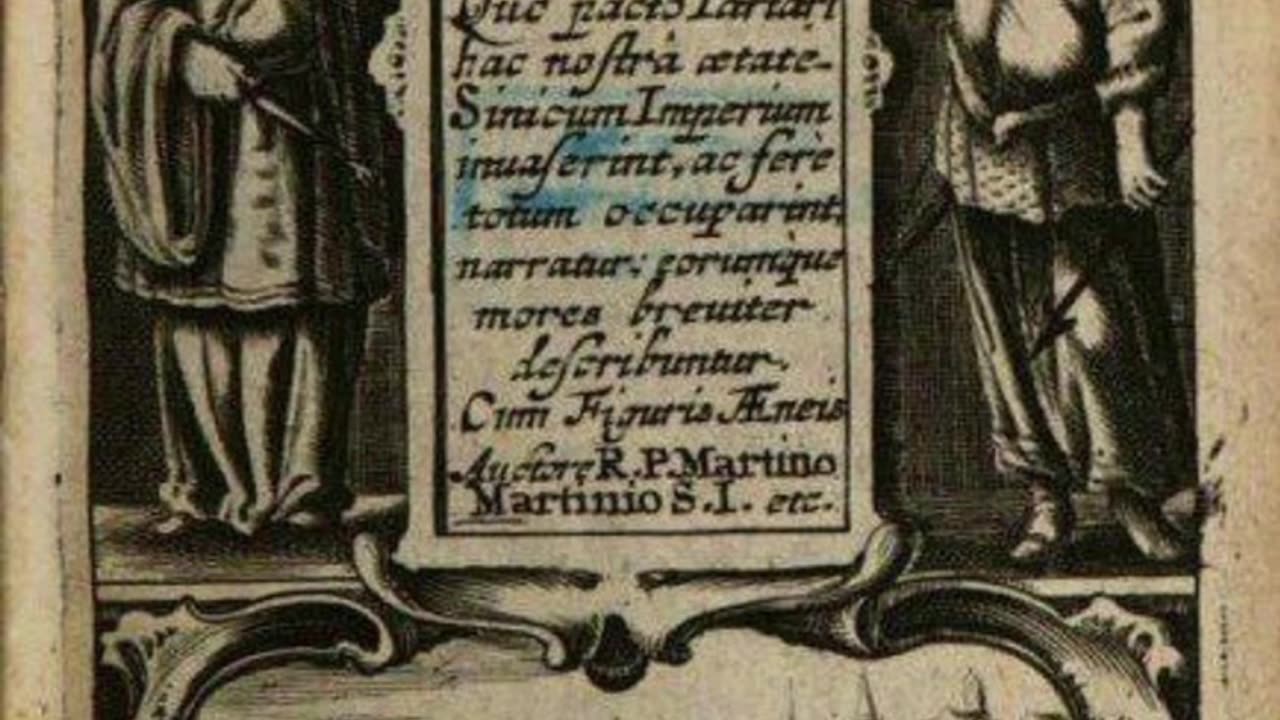 Quo pacto Tartari
hac nostrâ ætate
Sinicum Imperium
inuaserint, ac ferè
totum occuparint,
narratur; eorumque
mores breuiter
describuntur.
Cum Figuris Æneis
Auctore R.P.Martino
Martinio S.I. etc.